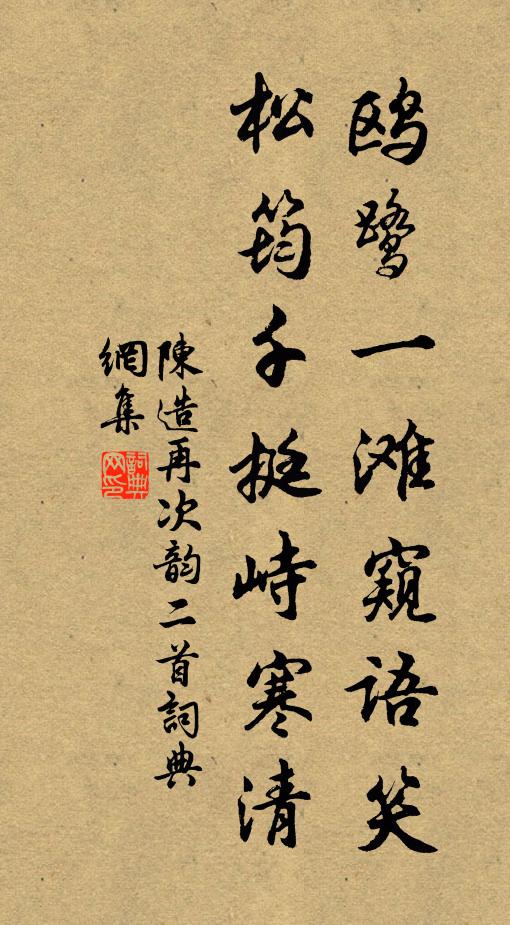 鸥鹭一滩窥語笑
松筠千挺峙寒清
陳造再次韵二首詞典
網集
詞典网印